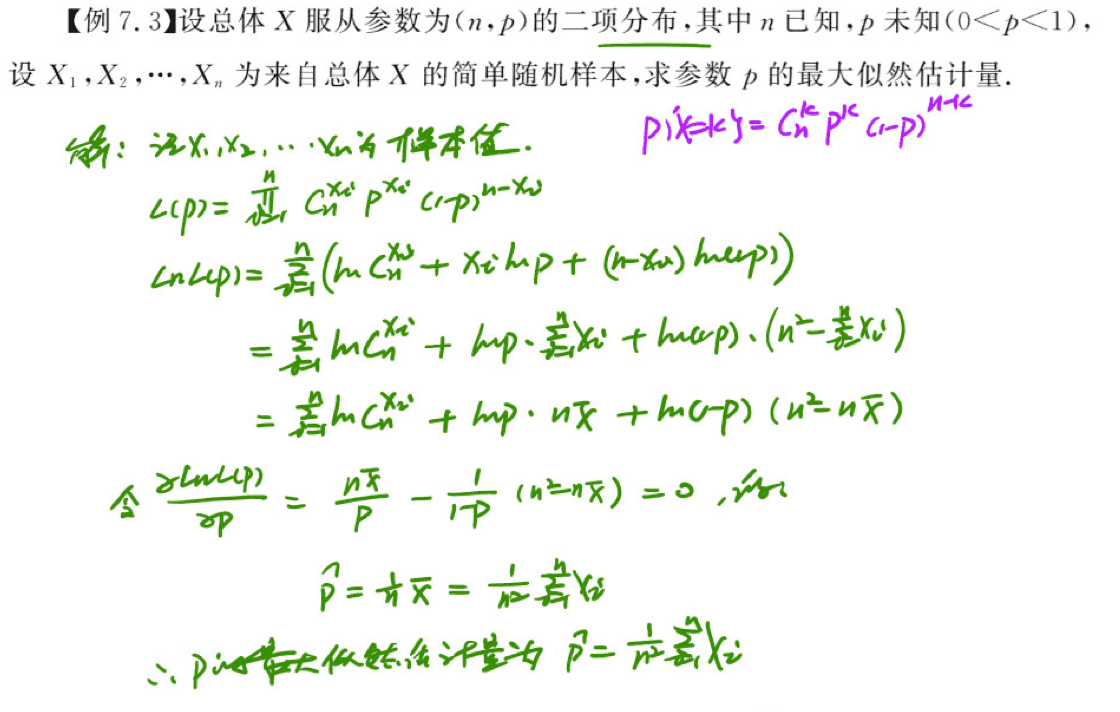 【例 7.3】设总体 X 服从参数为(n,p)的二项分布,其中 n 已知,p 未知(0<p<1),
设 X₁,X₂,…,Xₙ 为来自总体 X 的简单随机样本,求参数 p 的最大似然估计量.
P{X=k}= Cₙᵏ pᵏ (1-p)ⁿ⁻ᵏ
解: 记x₁,x₂,…xₙ为样本值.
L(p)= ∏ᵢ₌₁ⁿ Cₙ^{xᵢ} p^{xᵢ} (1-p)^{n-xᵢ}
lnL(p)= ∑ᵢ₌₁ⁿ(ln Cₙ^{xᵢ} + xᵢ lnp + (n-xᵢ) ln(1-p))
= ∑ᵢ₌₁ⁿ ln Cₙ^{xᵢ} + lnp·∑ᵢ₌₁ⁿ xᵢ + ln(1-p)·(n²-∑ᵢ₌₁ⁿ xᵢ)
= ∑ᵢ₌₁ⁿ ln Cₙ^{xᵢ} + lnp· n x̄ + ln(1-p) (n²-n x̄)
令 ∂lnL(p)/∂p = n x̄/p - 1/(1-p) (n²-n x̄) = 0 ,
p̂ = 1/n x̄ = 1/n² ∑ᵢ₌₁ⁿ xᵢ
∴ p的最大似然估计量为 p̂ = 1/n² ∑ᵢ₌₁ⁿ Xᵢ